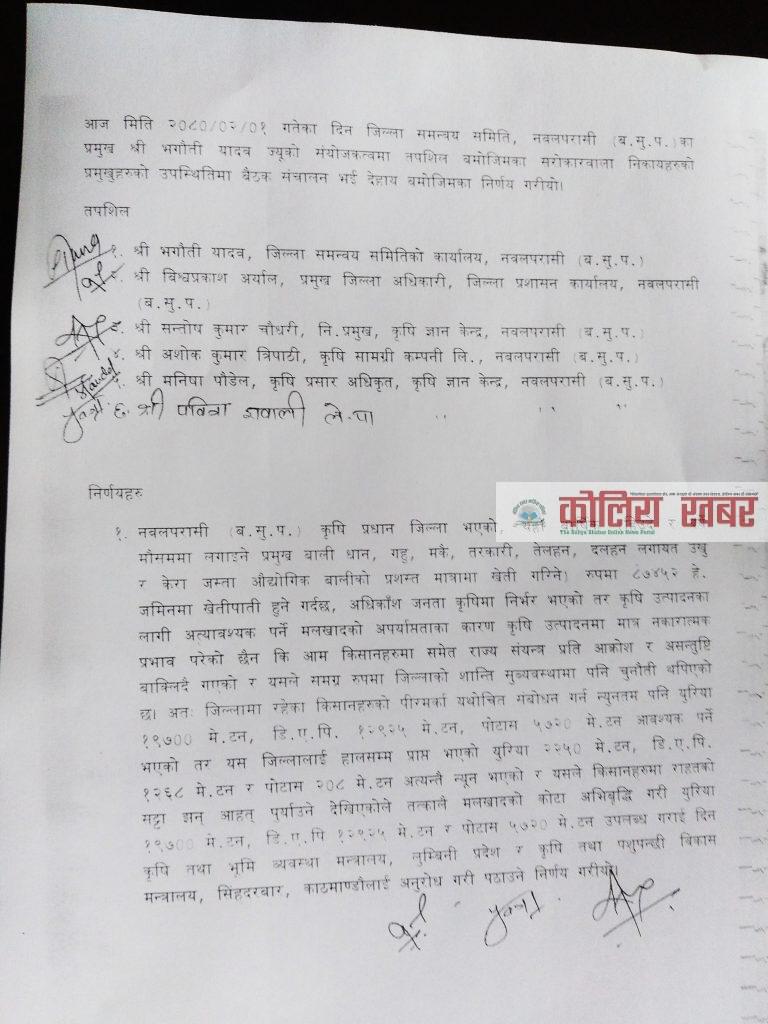 आज मिति २०८०/०२/०१ गतेका दिन जिल्ला समन्वय समिति, नवलपरासी (ब.सु.प.)का
प्रमुख श्री भगौती यादव ज्यूको संयोजकत्वमा तपशिल बमोजिमका सरोकारवाला निकायहरुको
प्रमुखहरुको उपस्थितिमा बैठक संचालन भई देहाय बमोजिमका निर्णय गरीयो।
तपशिल
१. श्री भगौती यादव, जिल्ला समन्वय समितिको कार्यालय, नवलपरासी (ब.सु.प.)
२. श्री विश्वप्रकाश अर्याल, प्रमुख जिल्ला अधिकारी, जिल्ला प्रशासन कार्यालय, नवलपरासी
(ब.सु.प.)
३. श्री सन्तोष कुमार चौधरी, नि.प्रमुख, कृषि ज्ञान केन्द्र, नवलपरासी (ब.सु.प.)
४. श्री अशोक कुमार त्रिपाठी, कृषि सामग्री कम्पनी लि., नवलपरासी (ब.सु.प.)
५. श्री मनिषा पौडेल, कृषि प्रसार अधिकृत, कृषि ज्ञान केन्द्र, नवलपरासी (ब.सु.प.)
६. श्री पवित्रा ज्ञवाली ले.पा ,, ,, ,,
निर्णयहरु
कोलिया खबर
The Koliya Khabar Online News Portal
१. नवलपरासी (ब.सु.प.) कृषि प्रधान जिल्ला भएको, र
मौसममा लगाइने प्रमुख बाली धान, गहु, मकै, तरकारी, तेलहन, दलहन लगायत उखु
र केरा जस्ता औद्योगिक बालीको प्रशस्त मात्रामा खेती गरिने) रुपमा ८७४५२ हे.
जमिनमा खेतीपाती हुने गर्दछ, अधिकाँश जनता कृषिमा निर्भर भएको तर कृषि उत्पादनका
लागी अत्यावश्यक पर्ने मलखादको अपर्याप्तताका कारण कृषि उत्पादनमा मात्र नकारात्मक
प्रभाव परेको छैन कि आम किसानहरुमा समेत राज्य संयन्त्र प्रति आक्रोश र असन्तुष्टि
बाक्लिदै गएको र यसले समग्र रुपमा जिल्लाको शान्ति सुव्यवस्थामा पनि चुनौती थपिएको
छ। अतः जिल्लामा रहेका किसानहरुको पीरमर्का यथोचित संबोधन गर्न न्युनतम पनि युरिया
१९७०० मे.टन, डि.ए.पि. १२९२५ मे.टन, पोटास ५७२० मे.टन आवश्यक पर्ने
भएको तर यस जिल्लालाई हालसम्म प्राप्त भएको युरिया २२५० मे.टन, डि.ए.पि.
१२६८ मे.टन र पोटास २०८ मे.टन अत्यन्तै न्यून भएको र यसले किसानहरुमा राहतको
सट्टा झन् आहत् पुर्याउने देखिएकोले तत्कालै मलखादको कोटा अभिबृद्धि गरी युरिया
१९७०० मे.टन, डि.ए.पि १२९२५ मे.टन र पोटास ५७२० मे.टन उपलब्ध गराई दिन
कृषि तथा भूमि व्यवस्था मन्त्रालय, लुम्बिनी प्रदेश र कृषि तथा पशुपन्छी विकास
मन्त्रालय, सिंहदरबार, काठमाण्डौलाई अनुरोध गरी पठाउने निर्णय गरीयो।